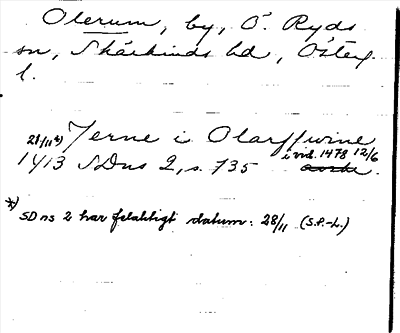 Olerum, by, Ö. Ryds
sn, Skärkinds hd, Österg.
l.
21/11 *) Jerne i Olarffwine
i vid. 1478 12/6
1413 SDns 2, s. 735
*) SDns 2 har felaktigt datum: 28/11 (S.P.-L.)